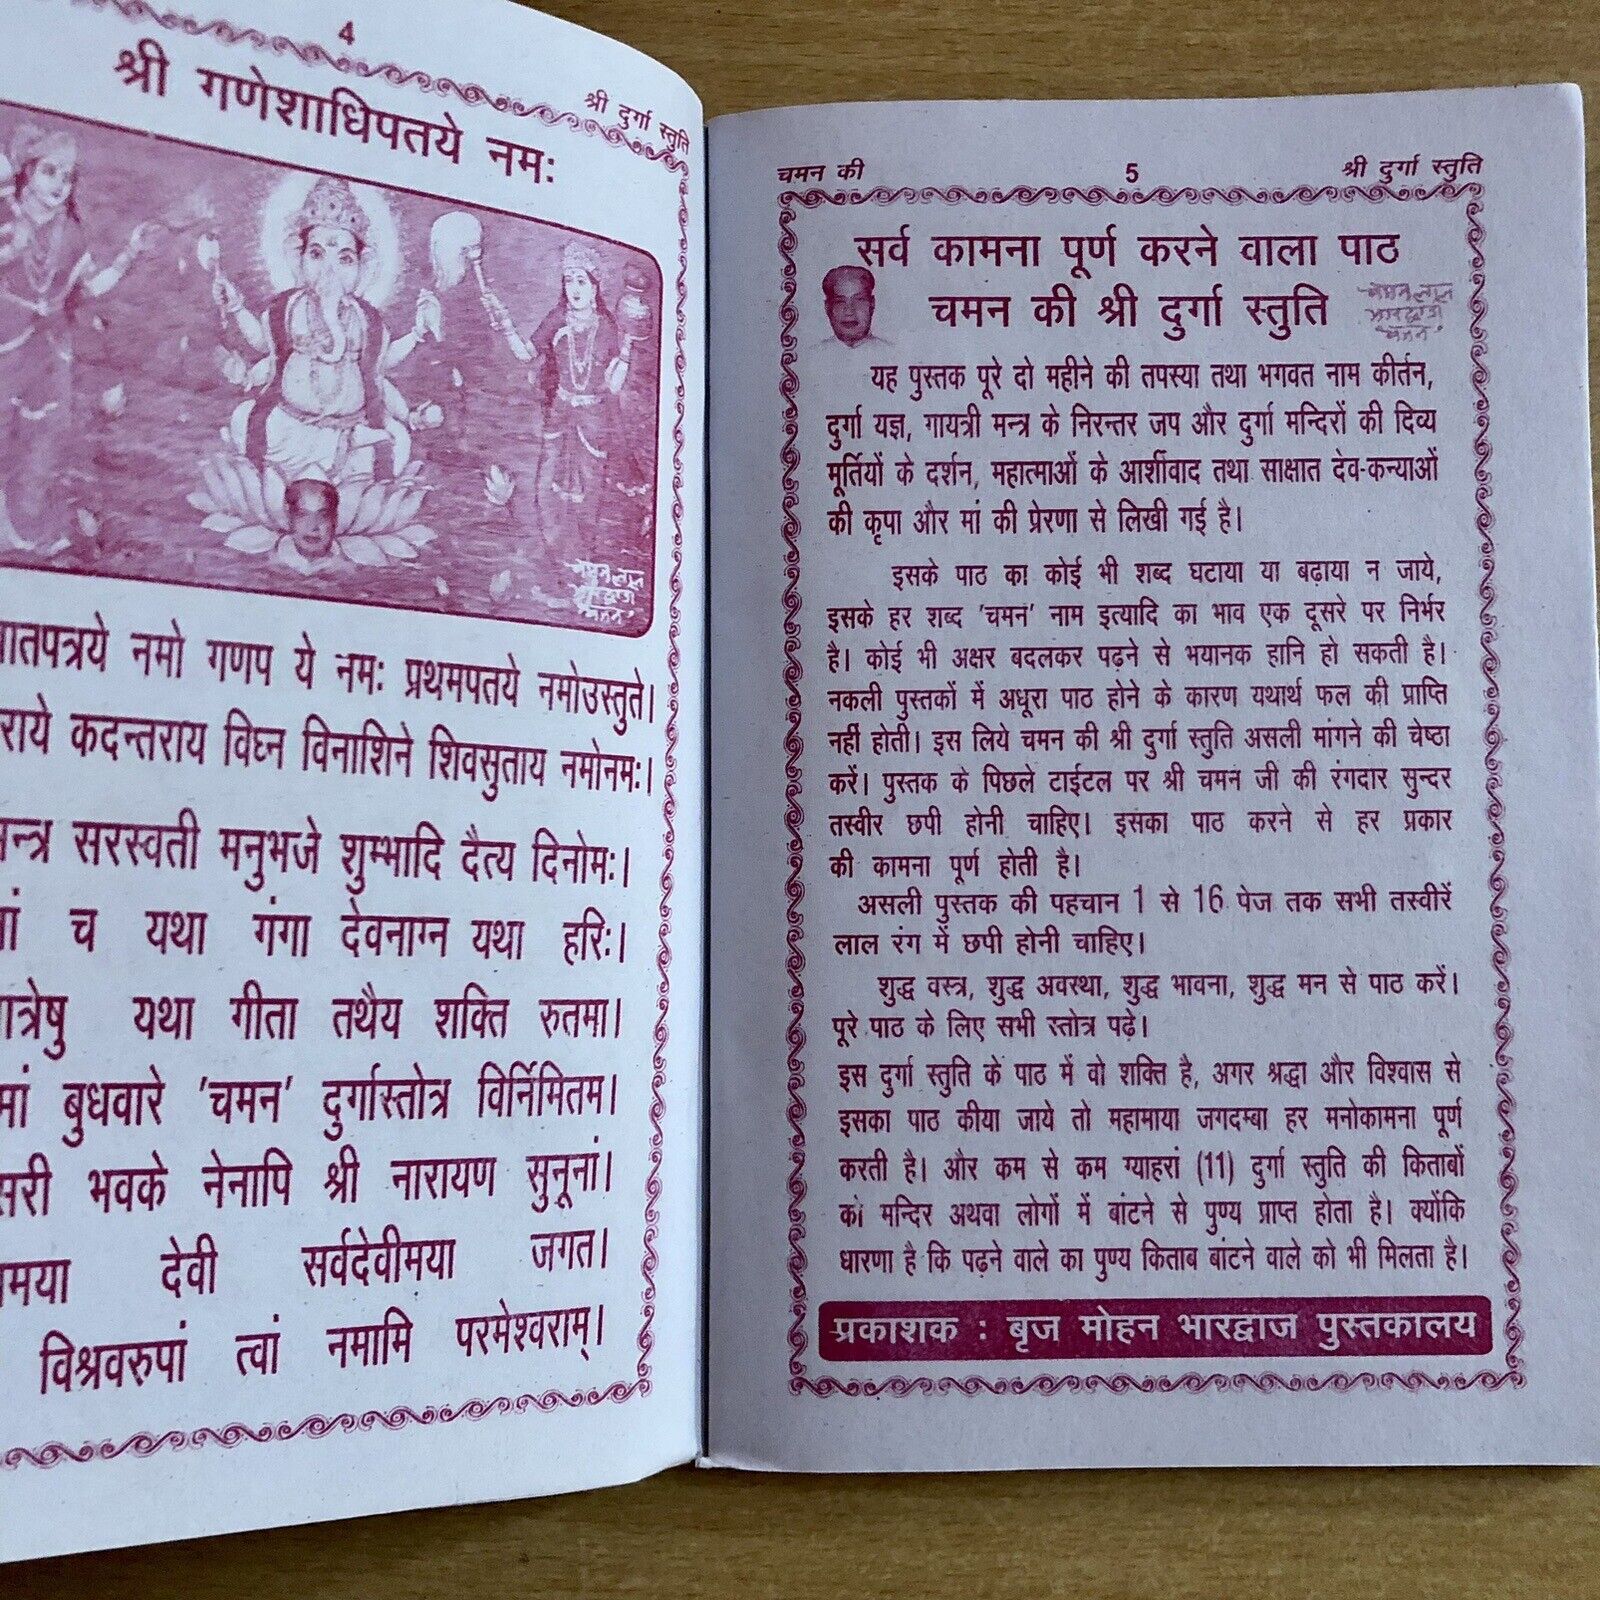 4
श्री दुर्गा स्तुति
श्री गणेशाधिपतये नमः
चमन लाल
भारद्वाज
चमन
नमो गणप ये नमः प्रथमपतये नमोउस्तुते।
कदन्तराय विघ्न विनाशिने शिवसुताय नमोनमः।
सरस्वती मनुभजे शुम्भादि दैत्य दिनोमः।
च यथा गंगा देवनाग्न यथा हरिः।
यथा गीता तथैय शक्ति रुतमा।
बुधवारे 'चमन' दुर्गास्तोत्र विर्निमितम।
भवके नेनापि श्री नारायण सुनूनां।
देवी सर्वदेवीमया जगत।
विश्रवरुपां त्वां नमामि परमेश्वराम्।
चमन की 5 श्री दुर्गा स्तुति
सर्व कामना पूर्ण करने वाला पाठ
चमन की श्री दुर्गा स्तुति
चमन लाल
भारद्वाज
चमन
यह पुस्तक पूरे दो महीने की तपस्या तथा भगवत नाम कीर्तन,
दुर्गा यज्ञ, गायत्री मन्त्र के निरन्तर जप और दुर्गा मन्दिरों की दिव्य
मूर्तियों के दर्शन, महात्माओं के आर्शीवाद तथा साक्षात देव-कन्याओं
की कृपा और मां की प्रेरणा से लिखी गई है।
इसके पाठ का कोई भी शब्द घटाया या बढ़ाया न जाये,
इसके हर शब्द 'चमन' नाम इत्यादि का भाव एक दूसरे पर निर्भर
है। कोई भी अक्षर बदलकर पढ़ने से भयानक हानि हो सकती है।
नकली पुस्तकों में अधूरा पाठ होने के कारण यथार्थ फल की प्राप्ति
नहीं होती। इस लिये चमन की श्री दुर्गा स्तुति असली मांगने की चेष्ठा
करें। पुस्तक के पिछले टाईटल पर श्री चमन जी की रंगदार सुन्दर
तस्वीर छपी होनी चाहिए। इसका पाठ करने से हर प्रकार
की कामना पूर्ण होती है।
असली पुस्तक की पहचान 1 से 16 पेज तक सभी तस्वीरें
लाल रंग में छपी होनी चाहिए।
शुद्ध वस्त्र, शुद्ध अवस्था, शुद्ध भावना, शुद्ध मन से पाठ करें।
पूरे पाठ के लिए सभी स्तोत्र पढ़े।
इस दुर्गा स्तुति के पाठ में वो शक्ति है, अगर श्रद्धा और विश्वास से
इसका पाठ कीया जाये तो महामाया जगदम्बा हर मनोकामना पूर्ण
करती है। और कम से कम ग्याहरां (11) दुर्गा स्तुति की किताबों
को मन्दिर अथवा लोगों में बांटने से पुण्य प्राप्त होता है। क्योंकि
धारणा है कि पढ़ने वाले का पुण्य किताब बांटने वाले को भी मिलता है।
प्रकाशक : बृज मोहन भारद्वाज पुस्तकालय